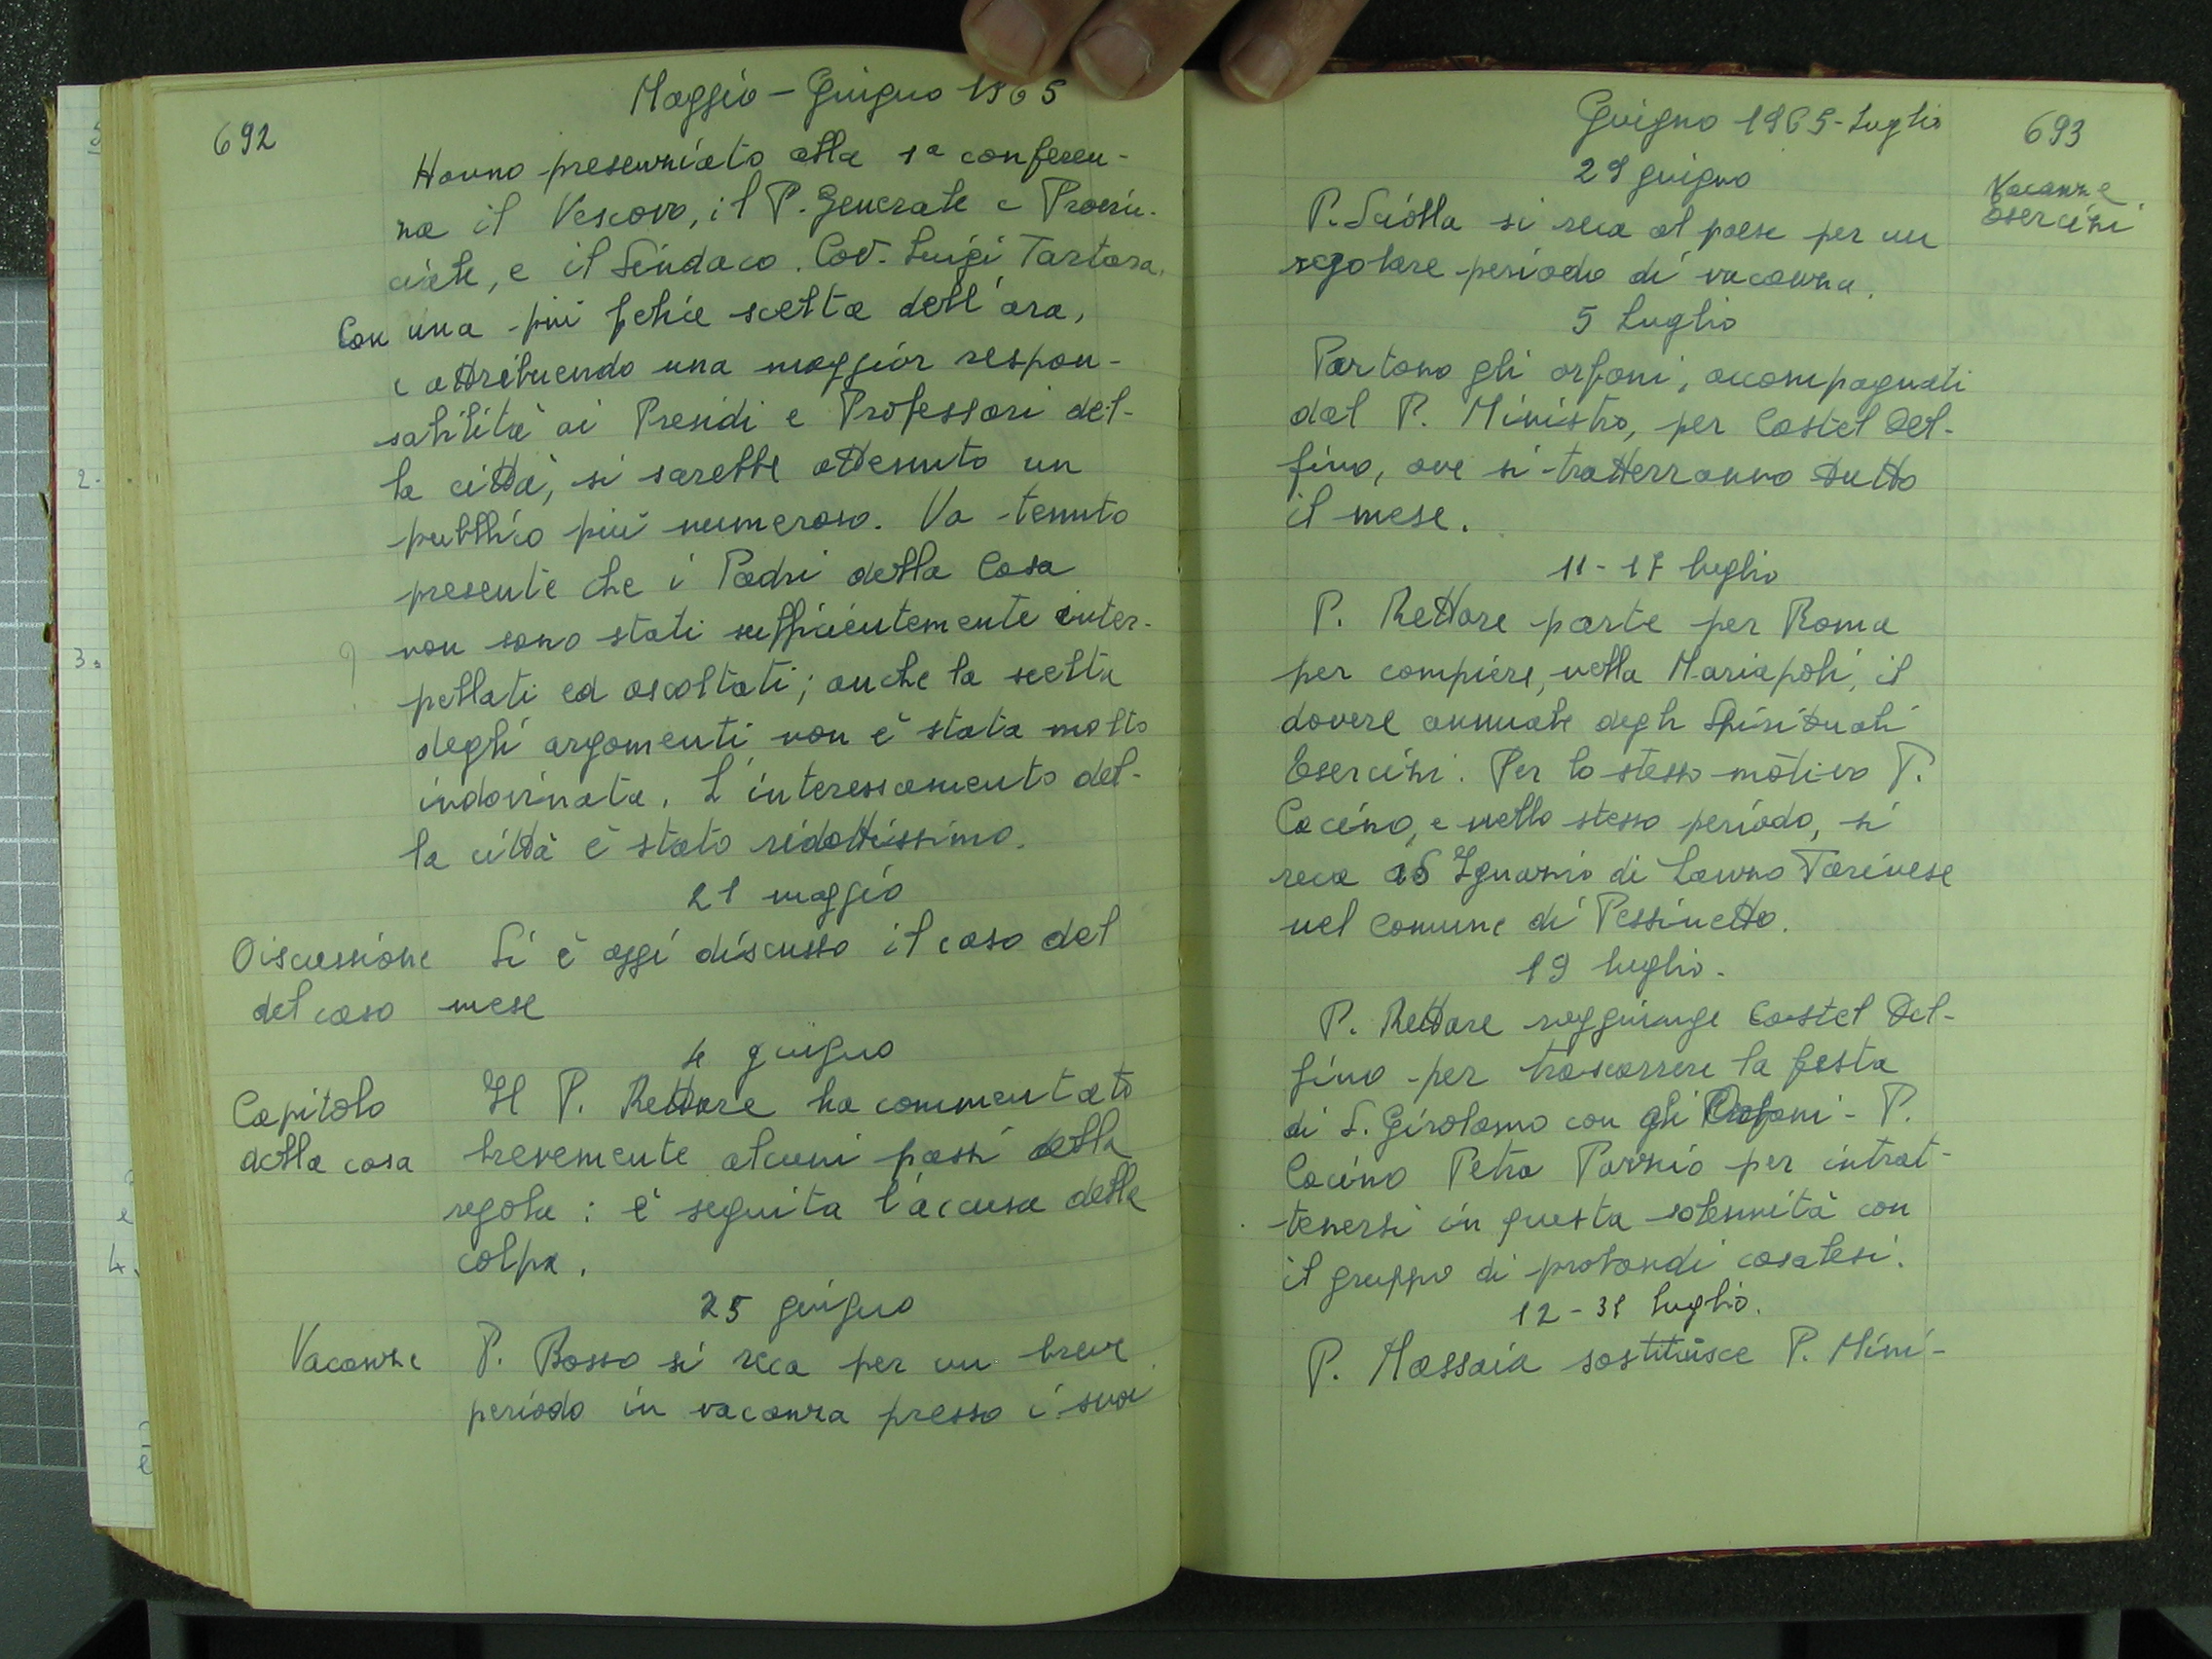 692
Maggio - Giugno 1965
Hanno presenziato alla 1a conferen-
za il Vescovo, il P. Generale e Provin-
ciale, e il Sindaco. Cav. Luigi Tartara.
Con una più felice scelta dell'ora,
e attribuendo una maggior respon-
sabilità ai Presidi e Professori del-
la città, si sarebbe ottenuto un
pubblico più numeroso. Va tenuto
presente che i Padri della Casa
non sono stati sufficientemente inter-
pellati ed ascoltati; anche la scelta
degli argomenti non è stata molto
indovinata. L'interessamento del-
la città è stato ridottissimo.
21 maggio
Discussione
del caso
Si è oggi discusso il caso del
mese
4 giugno
Capitolo
della casa
Il P. Rettore ha commentato
brevemente alcuni passi della
regola: è seguita l'accusa della
colpa.
25 giugno
Vacanze
P. Bosso si reca per un breve
periodo in vacanza presso i suoi
Giugno 1965 - Luglio
693
29 giugno
Vacanze
Esercizi
P. Sciolla si reca al paese per un
regolare periodo di vacanza.
5 Luglio
Partono gli orfani, accompagnati
dal P. Ministro, per Castel Del-
fino, ove si tratterranno tutto
il mese.
11 - 17 luglio
P. Rettore parte per Roma
per compiere, nella Mariapoli, il
dovere annuale degli Spirituali
Esercizi. Per lo stesso motivo P.
Cocino, e nello stesso periodo, si
reca a S Ignazio di Lanzo Torinese
nel Comune di Pessinetto.
19 luglio.
P. Rettore raggiunge Castel Del-
fino per trascorrere la festa
di S. Girolamo con gli Orfani - P.
Cocino Petra Parzio per intrat-
tenersi in questa solennità con
il gruppo di probandi casalesi.
12 - 31 luglio.
P. Massaia sostituisce P. Mini-